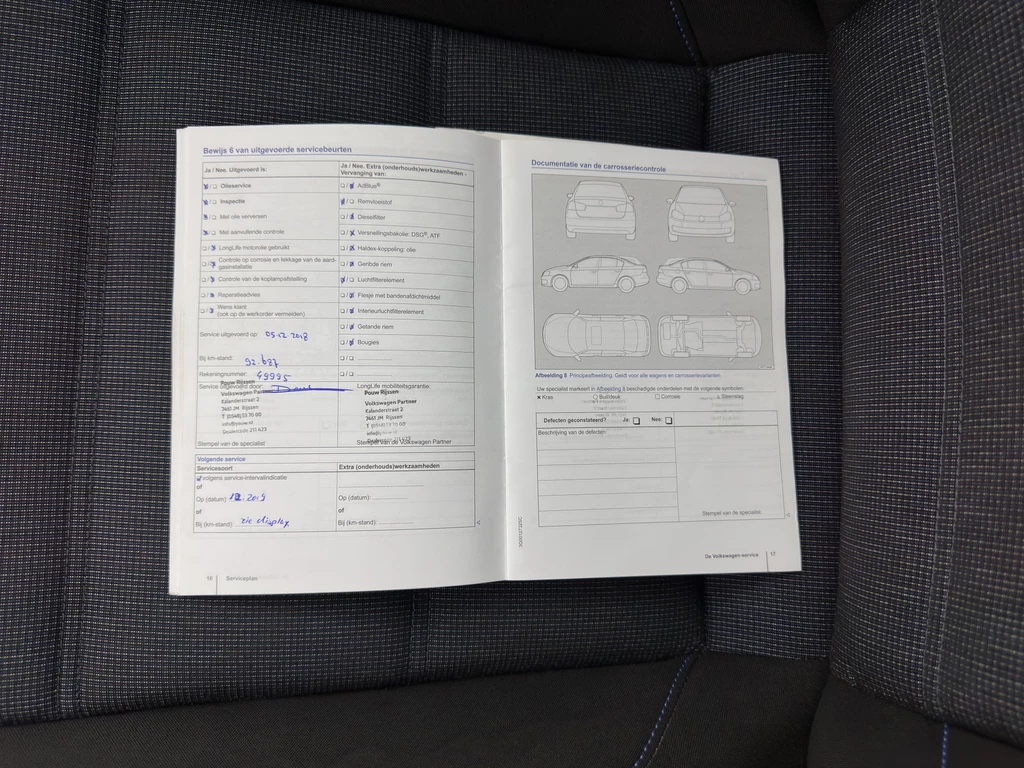 Bewijs 6 van uitgevoerde servicebeurten
Ja / Nee. Uitgevoerd is:
Ja / Nee. Extra (onderhouds)werkzaamheden -
Vervanging van:
Olieservice
AdBlue®
Inspectie
Remvloeistof
Met olie verversen
Dieselfilter
Met aanvullende controle
Versnellingsbakolie: DSG®, ATF
LongLife motorolie gebruikt
Haldex-koppeling: olie
Controle op corrosie en lekkage van de aard-
gasinstallatie
Geribde riem
Controle van de koplampafstelling
Luchtfilterelement
Reparatieadvies
Flesje met bandenafdichtmiddel
Wens klant
(ook op de werkorder vermelden)
Interieurluchtfilterelement
Getande riem
Service uitgevoerd op: 05.12.2018
Bougies
Bij km-stand: 92.687
Rekeningnummer: 69995
Service uitgevoerd door:
LongLife mobiliteitsgarantie:
Pouw Rijssen
Volkswagen Partner
Kalanderstraat 2
7461 JM Rijssen
T (0548) 53 70 00
info@pouw.nl
Dealercode 211 423
Pouw Rijssen
Volkswagen Partner
Kalanderstraat 2
7461 JM Rijssen
Stempel van de specialist
Stempel van de Volkswagen Partner
Volgende service
Servicesoort
Extra (onderhouds)werkzaamheden
volgens service-intervalindicatie
of
Op (datum): 12.2019
Op (datum):
of
of
Bij (km-stand): zie display
Bij (km-stand):
16 Serviceplan
Documentatie van de carrosseriecontrole
Afbeelding 8 Principeafbeelding. Geldt voor alle wagens en carrosserievarianten.
Uw specialist markeert in Afbeelding 8 beschadigde onderdelen met de volgende symbolen:
x Kras
Buil/deuk
Corrosie
Steenslag
Defecten geconstateerd? Ja: Nee:
Beschrijving van de defecten:
Stempel van de specialist
De Volkswagen-service 17